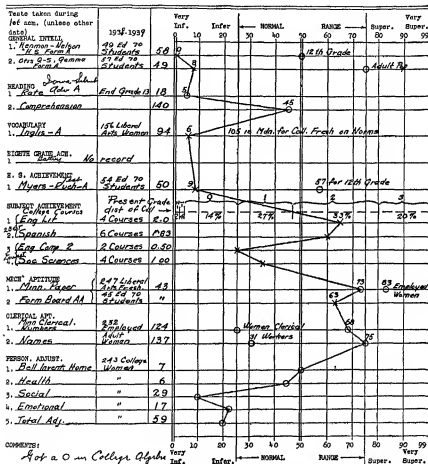 Tests taken during
1st sem. (unless other date) 1938-1939 Very Inf. Infer NORMAL RANGE Super. Very Super.
0 10 20 30 40 50 60 70 80 90 99
GENERAL INTELL
1. Henmon-Nelson H S Form A 49 Ed 70 Students 58 0 12th Grade
2. Otis Q-S. Gamma Form A 57 Ed 70 Students 49 8 Adult Pop
READING Iowa Silent
1. Rate Adv A End Grade 13 18 5
2. Comprehension 140 45
VOCABULARY
1. Inglis-A 156 Liberal Arts Women 94 6 105 is Mdn. for Coll. Fresh on Norms
EIGHTH GRADE ACH.
1. Battery No record
H. S. ACHIEVEMENT
1. Myers-Ruch-A 54 Ed 70 Students 50 9 57 for 12th Grade
SUBJECT ACHIEVEMENT Present Grade 0 1 2 3
College Courses dist of Coll 14% 27% 33% 20%
1. Eng Lit 4 Courses 2.0
2. Spanish 6 Courses 1.83
3. Eng Comp. 2 2 Courses 0.50
4. Soc Sciences 4 Courses 1.00
MECH' APTITUDE
1. Minn. Paper 247 Liberal Arts Fresh 43 73 83 Employed Women
2. Form Board AA 45 Ed 70 Students " 63
CLERICAL APT.
Minn Clerical.
1. Numbers 232 Employed 124 Women Clerical 68
2. Names Adult Women 137 31 Workers 75
PERSON. ADJUST.
1. Bell Invent Home 243 College Women 7
2. Health " 6
3. Social " 29
4. Emotional " 17
5. Total Adj. " 59
0 10 20 30 40 50 60 70 80 90 99
COMMENTS:
Got a 0 in College Algebra Very Inf. Infer NORMAL RANGE Super. Very Super.